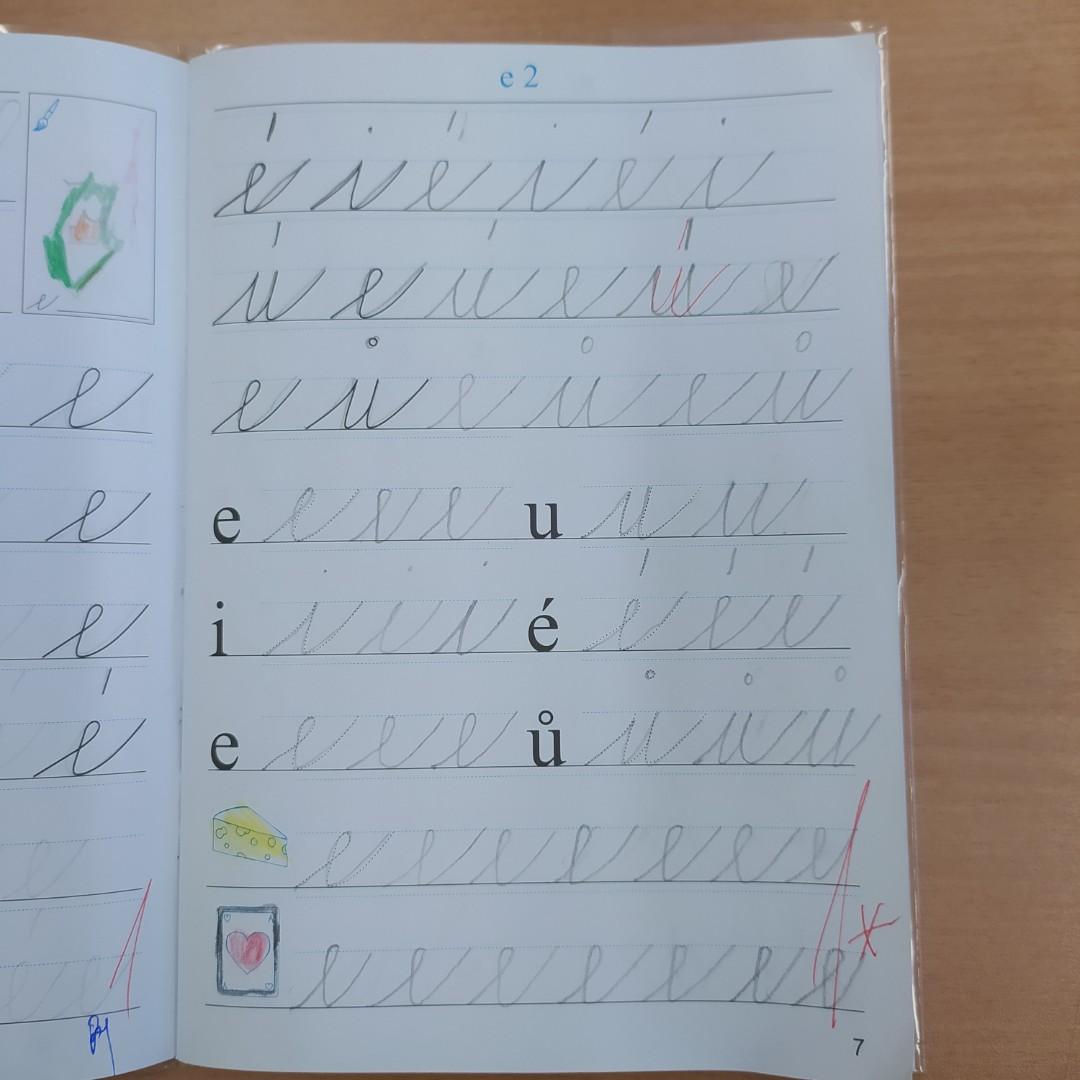 e
e
e
e
é
e
1
e 2
é i é i é i
ú e ú e ú e
e ů e ů e ů
e e e e u u u
i i i i é é é é
e e e e ů ů ů ů
e e e e e e e
e e e e e e e
1*
7